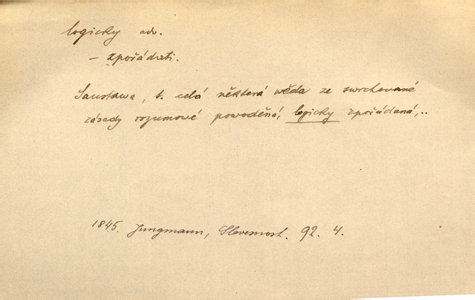 logicky adv.
– zpořádati.
Saustawa, t. celá některá wěda ze swrchované
zásady rozumové powoděná, logicky zpořádaná,..
1845. Jungmann, Slovesnost. 92. 4.